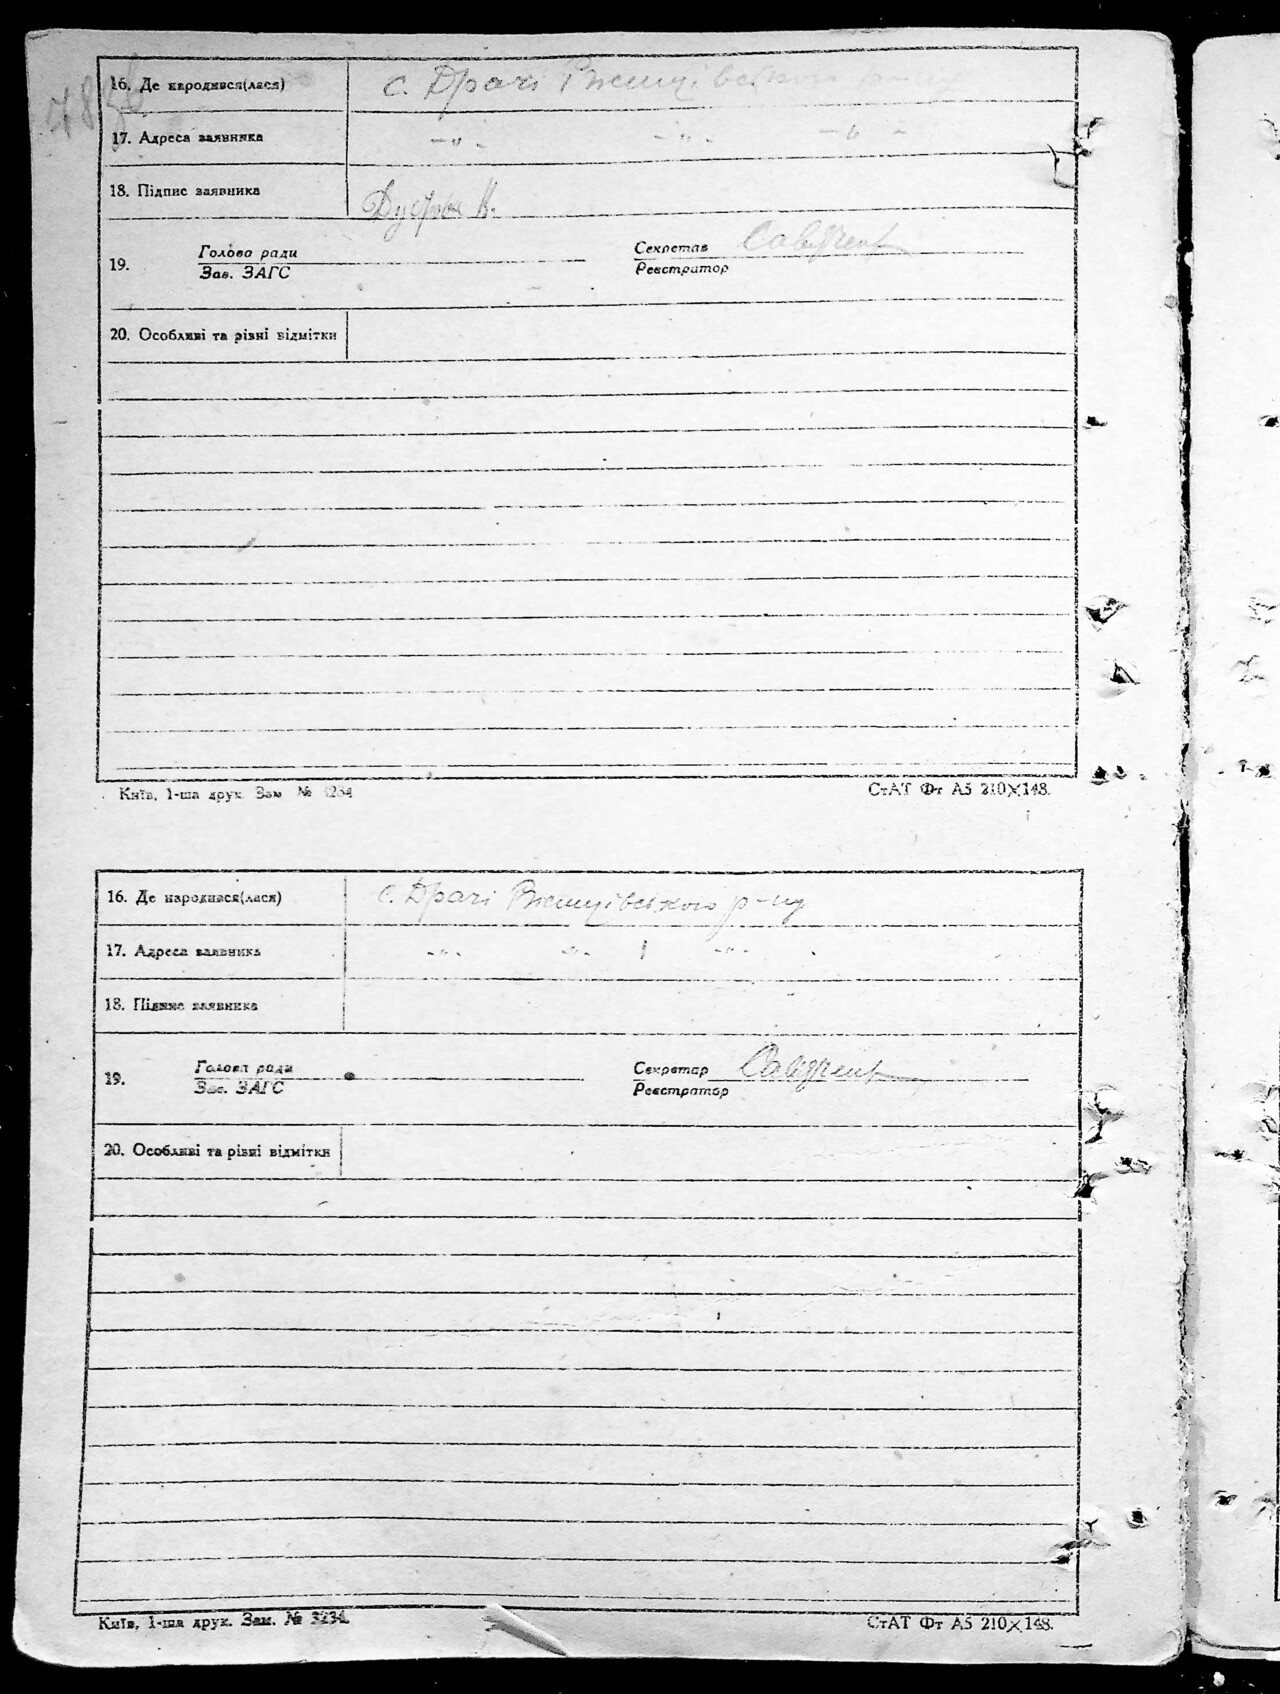 16. Де народився(лася) с. Драчі Ржищівського р-ну
17. Адреса заявника -"- -"- -"-
18. Підпис заявника
Голова ради Секретар
19. Зав. ЗАГС Реєстратор
20. Особливі та різні відмітки
Київ, 1-ша друк. Зам № 3234
СтАТ Фт А5 210×148.
16. Де народився(лася) с. Драчі Ржищівського р-ну
17. Адреса заявника -"- -"- -"-
18. Підпис заявника
Голова ради Секретар
19. Зав. ЗАГС Реєстратор
20. Особливі та різні відмітки
Київ, 1-ша друк. Зам. № 3234.
СтАТ Фт А5 210×148.